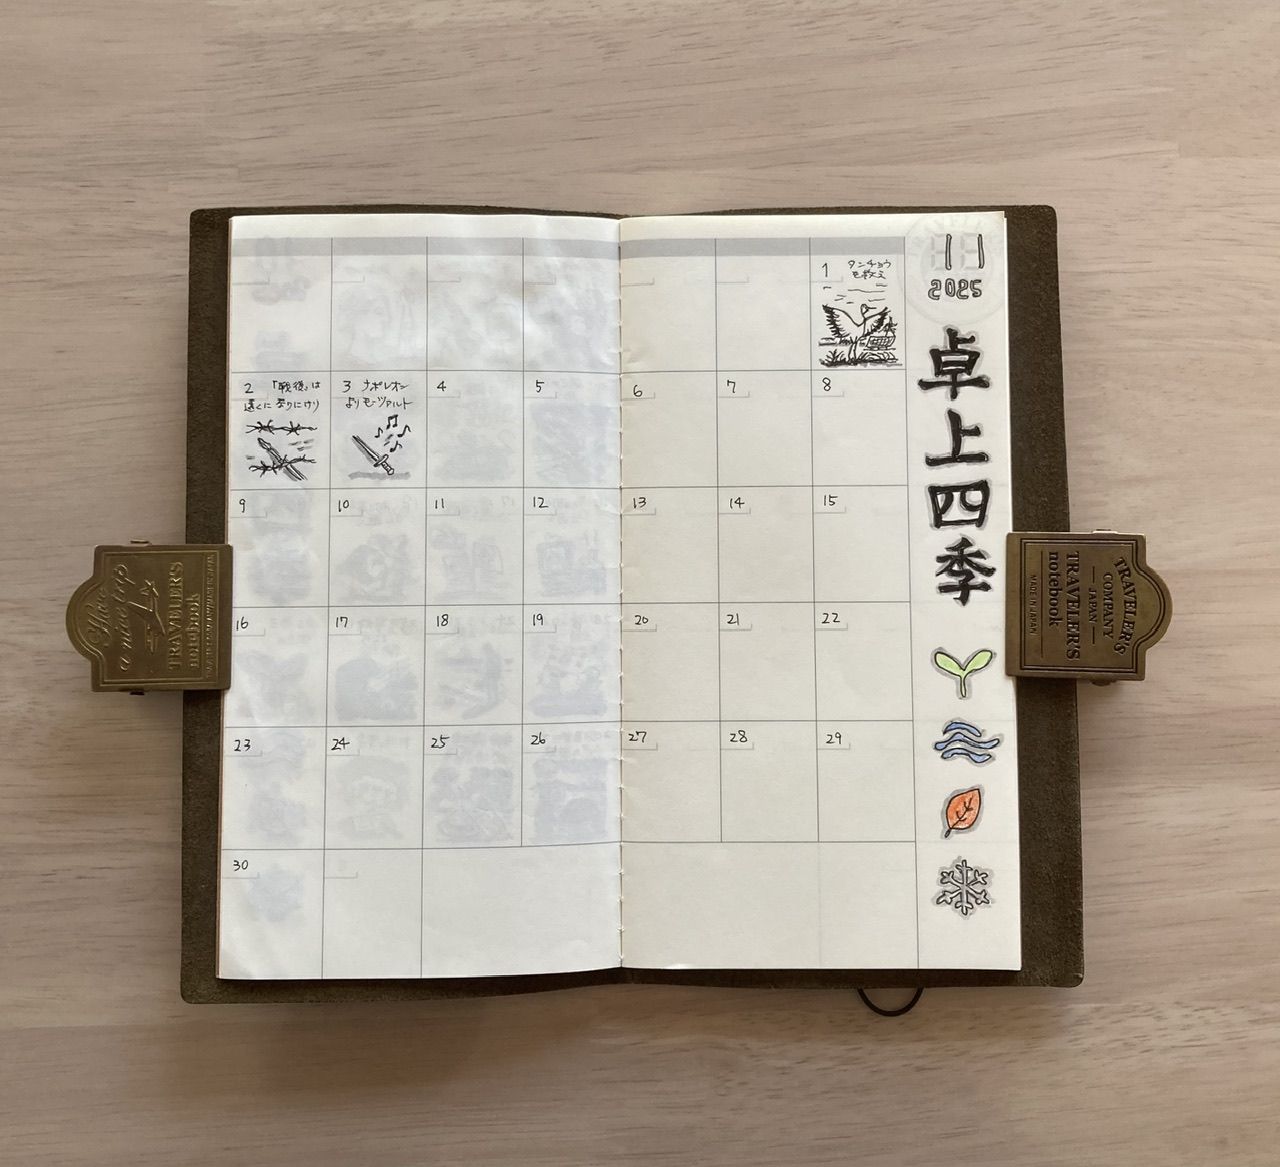 11
2025
卓上四季
1 タンチョウ
を救え
2 「戦後」は
遠くに なりにけり
3 ナポレオン
よりモーツァルト
4
5
6
7
8
9
10
11
12
13
14
15
16
17
18
19
20
21
22
23
24
25
26
27
28
29
30
Have
a nice trip
TRAVELER'S
notebook
TRAVELER'S
COMPANY
JAPAN
TRAVELER'S
notebook
MADE IN JAPAN